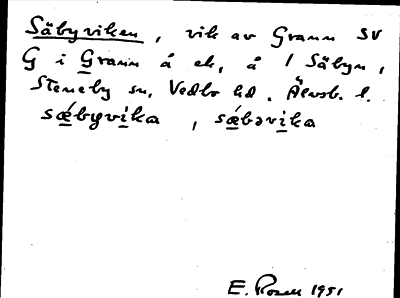 Säbyviken, vik av Grann SV
G i Grann å ek, å / Säbyn,
Steneby sn, Vedbo hd. Älvsb. l.
sǽbyvika, sǽbəvika
E. Rosell 1951